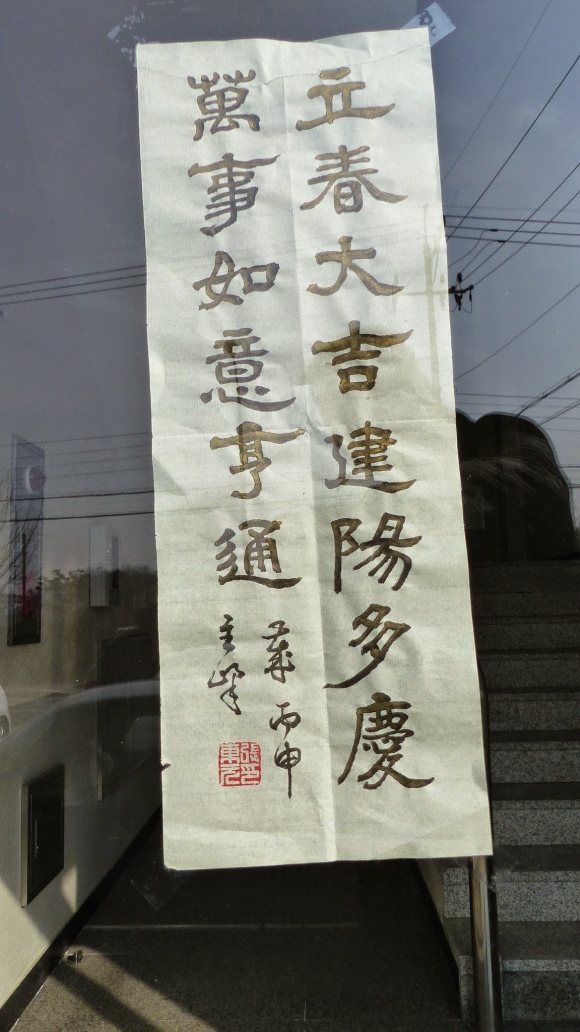 立春大吉建陽多慶
萬事如意亨通
歲丙申